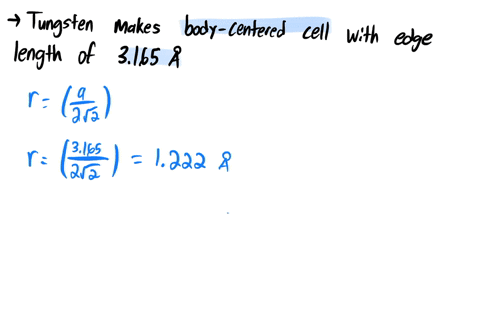 → Tungsten makes body-centered cell with edge
length of 3.165 Å
r = (a/2√2)
r = (3.165/2√2) = 1.222 Å